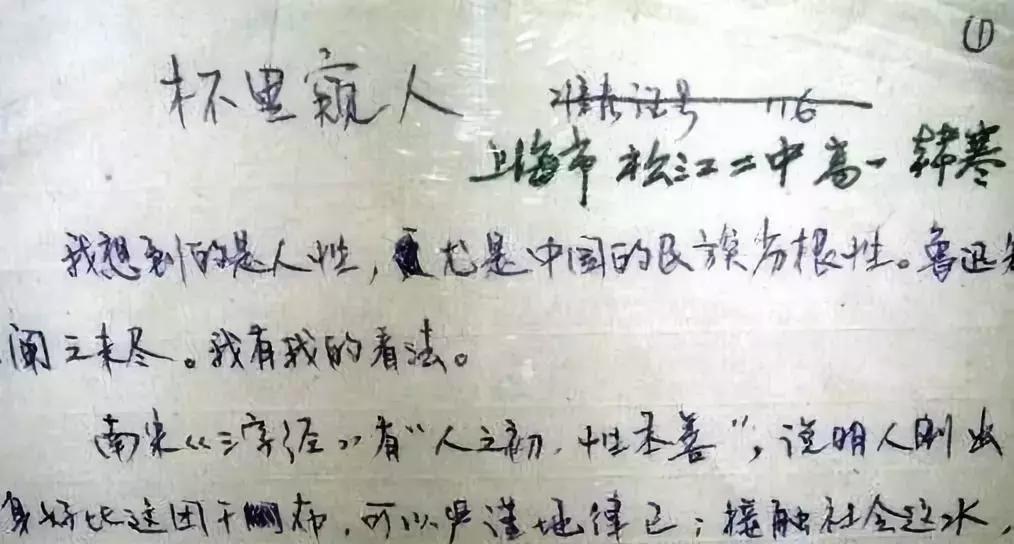 ①
杯里窥人
准考证号 116
上海市松江二中高一 韩寒
我想到的是人性，尤是中国的民族劣根性。鲁迅
阐之未尽。我有我的看法。
南宋《三字经》有“人之初，性本善”，说明人刚出
身好比这团干布，可以严谨地律己；接触社会这水，